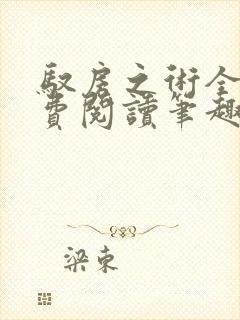 馭房之術全
費閱讀筆趣
梁東